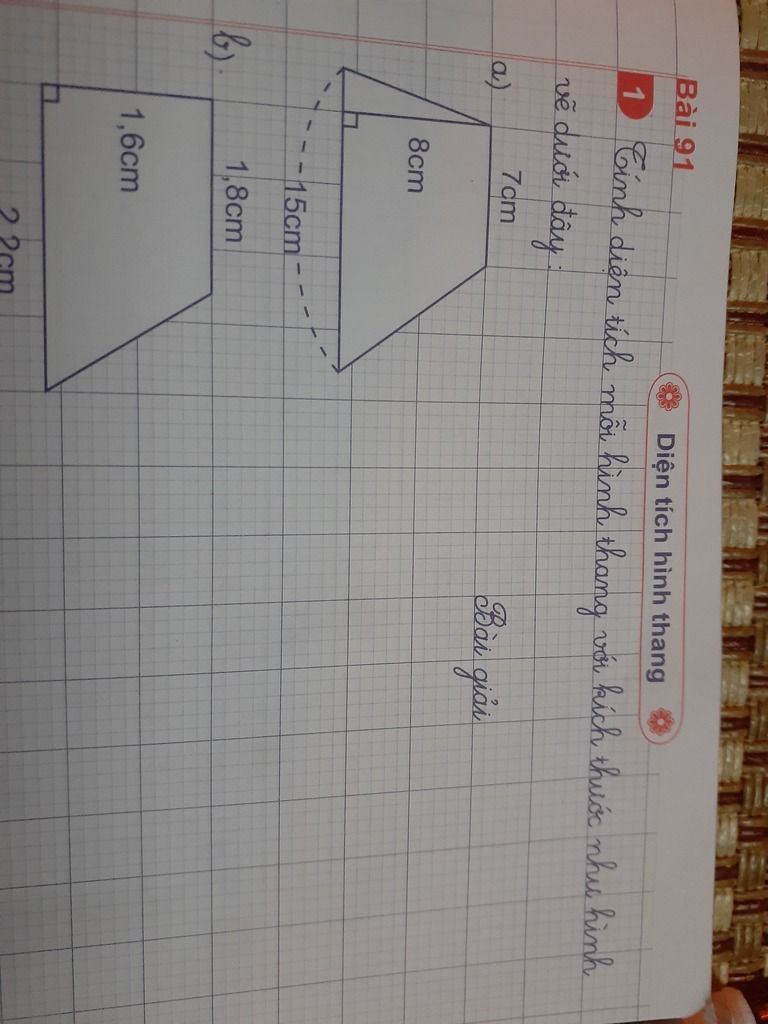 Bài 91
Diện tích hình thang
1 Tính diện tích mỗi hình thang với kích thước như hình
vẽ dưới đây:
a)
7cm
Bài giải
8cm
15cm
b).
1,8cm
1,6cm
2,2cm